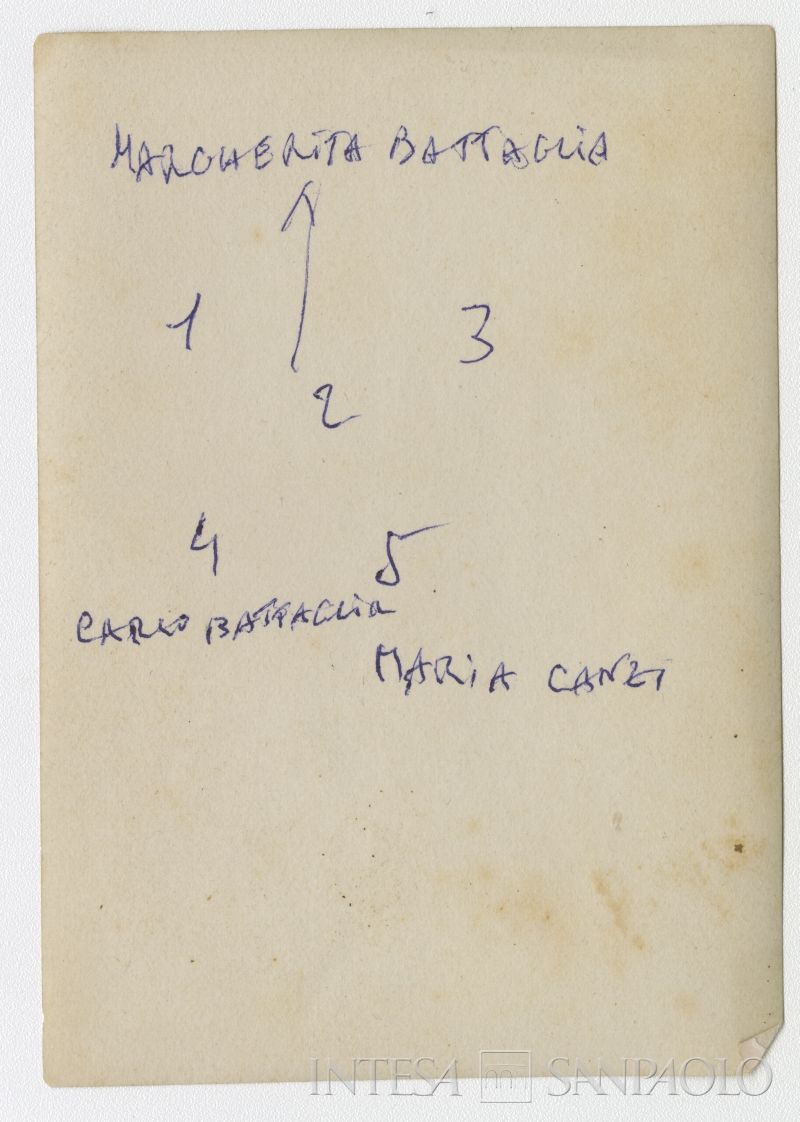 MARGHERITA BATTAGLIA
1
3
2
4
5
CARLO BATTAGLIA
MARIA CANZI
INTESA SANPAOLO